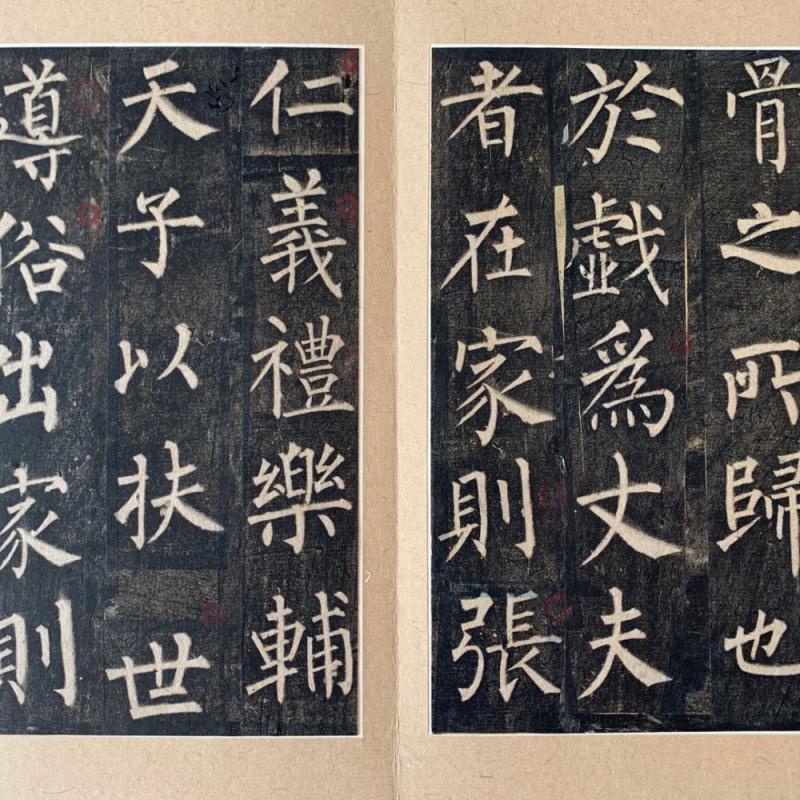 骨之所歸也
於戲爲丈夫
者在家則張
仁義禮樂輔
天子以扶世
導俗出家則